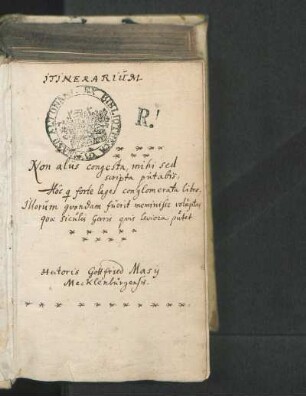 ITINERARIUM
R.!
Non aliis congesta, mihi sed
scripta putabis.
Hoc q forte leges conglomerata libro.
Illorum quondam fuerit meminisse voluptas,
quæ siculis Gerris quis leviora putet
Hectoris Gottfried Masij
Mecklenburgensis.